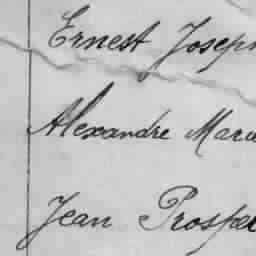 Ernest Joseph
Alexandre Marie
Jean Prosper